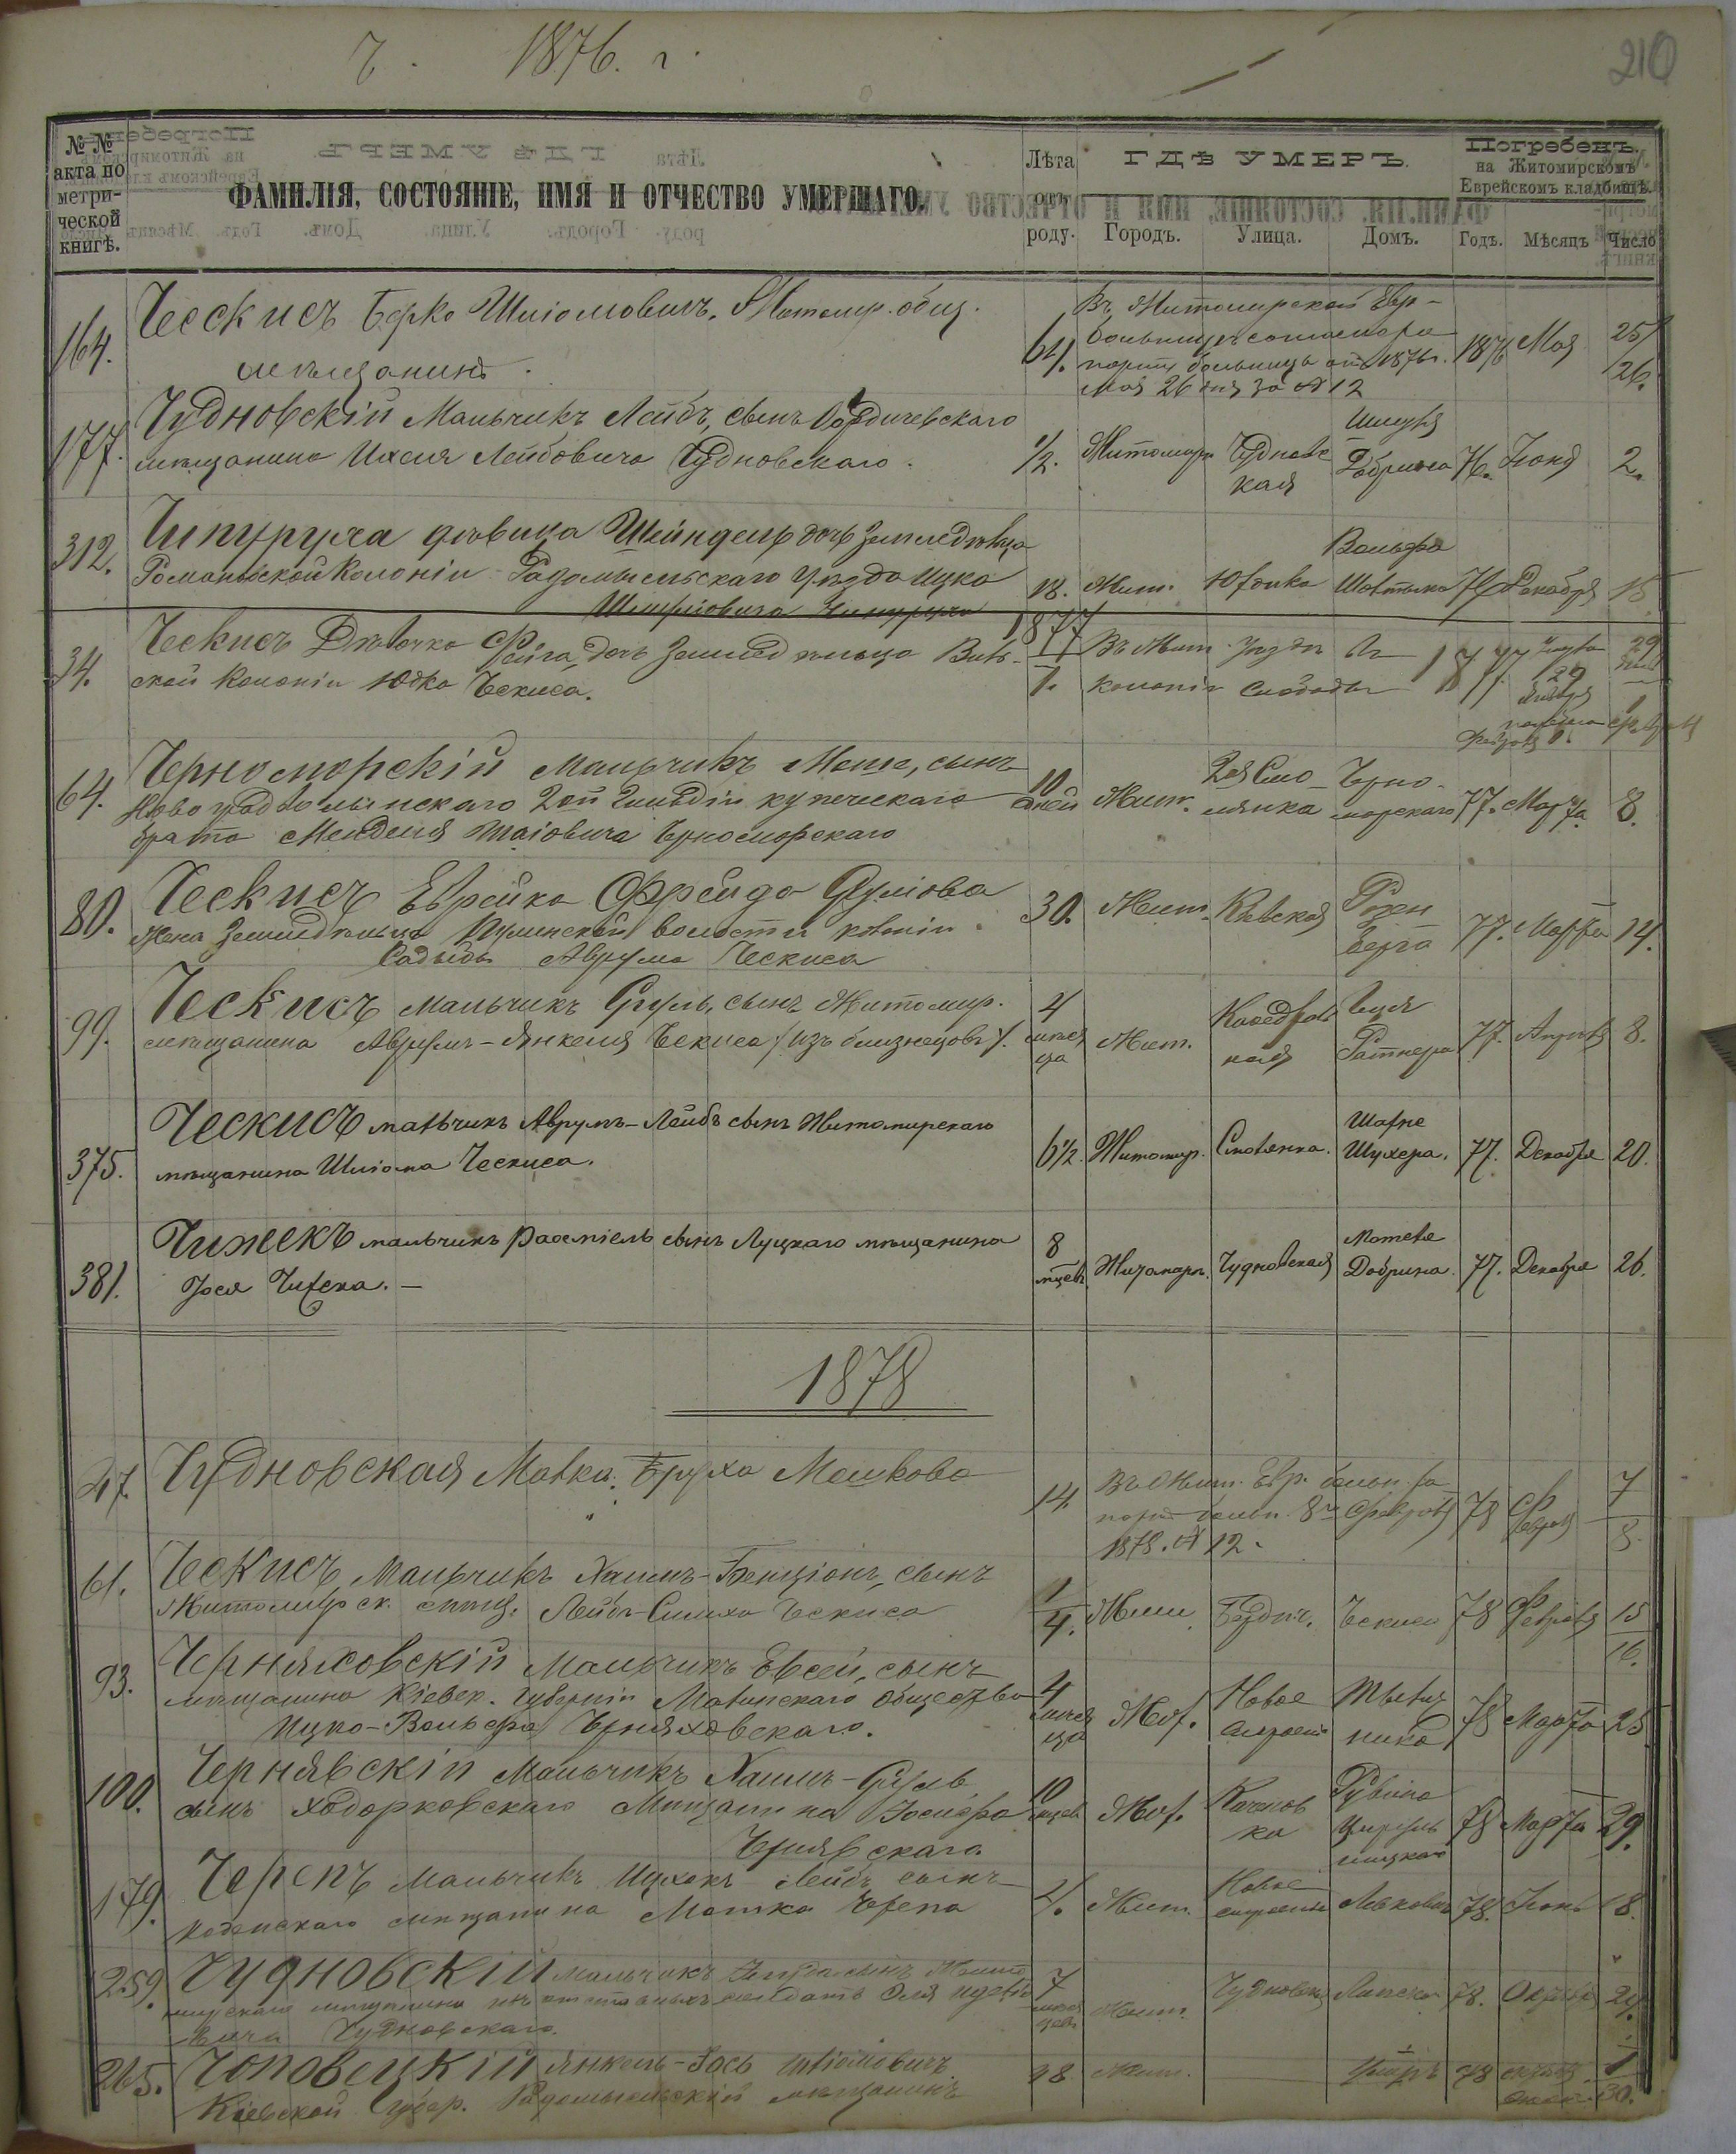 Ч. 1876. г.
210
№ №
акта по
метри-
ческой
книгѣ.
ФАМИЛІЯ, СОСТОЯНІЕ, ИМЯ И ОТЧЕСТВО УМЕРШАГО.
Лѣта
отъ
роду.
ГДѢ УМЕРЪ.
Городъ. Улица. Домъ.
Погребенъ
на Житомирскомъ
Еврейскомъ кладбищѣ.
Годъ. Мѣсяцъ Число
164. Ческисъ Берко Шліомовичъ, Житомир. общ.
мѣщанинъ.
64. Въ Житомирской Евр-
больницѣ
больницы отъ 1876 г.
Мая 26 дня за № 12
1876 Мая 25/26.
177. Чудновскій Мальчикъ Лейбъ, сынъ Бердичевскаго
мѣщанина Ихеля Лейбовича Чудновскаго.
1/2. Житомиръ Чуднов
ская Добрина 76. Іюня 2.
312. Чипуруха дѣвица Шейндель дочь земледѣльца
Романовской Колоніи Радомысльскаго уѣзда Ицко
Шліомовича Чипуруха
18. Жит. Юрдика Вольфа
76 Декабря 15
1877
34. Ческисъ Дѣвочка Фейга, дочь Земледѣльца
ской колоніи Юдко Ческиса.
1. Въ Жит. уѣздѣ
колоніи Слободы
1877. 29
Января
Февраля 1.
64. Черноморскій Мальчикъ сынъ
Новоградволынскаго 2ой Гильдіи купеческаго
брата Менделя Шаіовича Черноморскаго
10
дней Жит. 2ая Смо-
лянка Черно-
морскаго 77. Марта 8.
80. Ческисъ Еврейка Фрейда Сруліова
Жена Земледѣльца Пулинской волости колоніи
Садыбы Аврума Ческиса
30. Жит. Кіевская Розен
берга 77. Марта 14.
99. Ческисъ мальчикъ Сруль, сынъ Житомир.
мѣщанина Аврумъ-Янкеля Ческиса /изъ близнецовъ/.
4
мѣся
ца Жит. Кафедраль
ная
Ратнера 77. Апрѣля 8.
375. Ческисъ мальчикъ Аврумъ-Лейбъ сынъ Житомирскаго
мѣщанина Шліома Ческиса.
6 1/2. Житомир. Смолянка. Шухера. 77. Декабря 20.
381. Чижекъ мальчикъ Рафаіель сынъ Луцкаго мѣщанина
Іося Чижека. —
8
мѣцевъ Житомиръ. Чудновская Мотеля
Добрина. 77. Декабря 26.
1878
47. Чудновская Малка Бруха Мошкова
14 Въ Жит. Евр. больн. ра
портъ больн. 8го Февраля
1878. № 12.
78 Февраля 7
8.
61. Ческисъ Мальчикъ Хаимъ-Бенціонъ, сынъ
Житомирск. мѣщ. Лейбъ-Симха Ческиса
1/4. Жит. Бердич. Ческиса 78 Февраля 15
16.
93. Черняховскій Мальчикъ Евсей, сынъ
мѣщанина Кіевск. губерніи Малинскаго Общества
Ицко-Вольфа Черняховскаго.
4
мѣся
ца Жит. Новое
Строеніе 78 Марта 25
100. Чернявскій Мальчикъ Хаимъ-Сруль
сынъ Ходорковскаго Мѣщанина Іосифа
Чернявскаго.
10
мѣцев Жит. Каченов
ка Рувина
78 Марта 29.
179. Черепъ Мальчикъ Ицхокъ-Лейбъ сынъ
Роденскаго мѣщанина Мотка Черепа
4. Жит. Новое
строеніе Левковича 78. Іюня 18.
259. Чудновскій мальчикъ сынъ Жито
мирскаго мѣщанина изъ отставныхъ солдатъ
вича Чудновскаго.
7
Жит. Чудновская 78. Октября 24.
265. Чоповецкій Янкель-Іось Шліомовичъ
Кіевской Губер. Радомысльскій мѣщанинъ
28 Жит. 78 30.